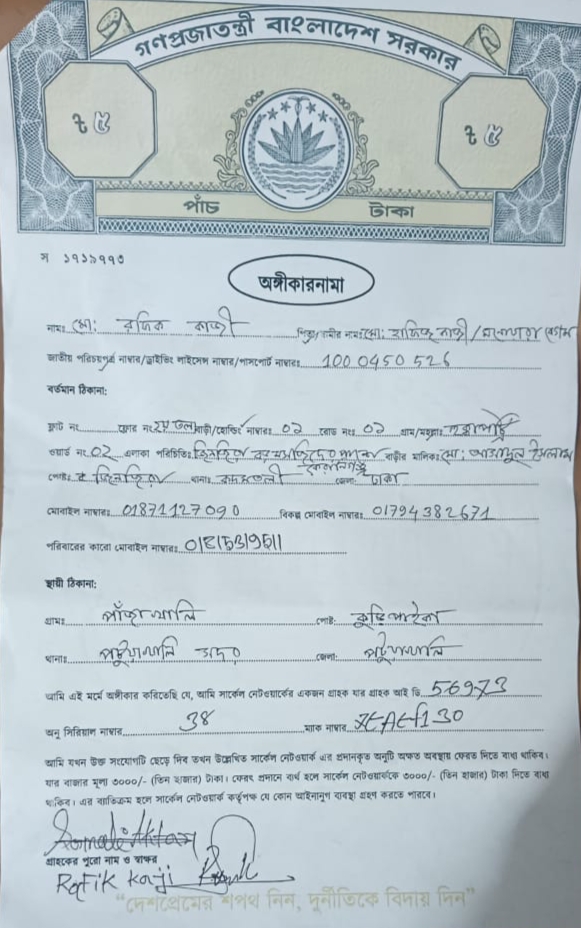 গণপ্রজাতন্ত্রী বাংলাদেশ সরকার
৳ ৫ ৳ ৫
পাঁচ টাকা
স ১৭১৯৭৭৩
অঙ্গীকারনামা
নামঃ মো: রফিক কাজী পিতা/স্বামীর নামঃ মো:
জাতীয় পরিচয়পত্র নাম্বার/ড্রাইভিং লাইসেন্স নাম্বার/পাসপোর্ট নাম্বারঃ 1000450526
বর্তমান ঠিকানা:
ফ্লাট নং ফ্লোর নং ২য় তলা বাড়ী/হোল্ডিং নাম্বারঃ ০১ রোড নংঃ ০১ গ্রাম/মহল্লাঃ
ওয়ার্ড নং 02 এলাকা পরিচিতিঃ বাড়ীর মালিকঃ মো: ইসলাম
কেরানীগঞ্জ
পোষ্টঃ জিনজিরা থানাঃ কদমতলী জেলাঃ ঢাকা
মোবাইল নাম্বারঃ 01871127090 বিকল্প মোবাইল নাম্বারঃ 01794382671
পরিবারের কারো মোবাইল নাম্বারঃ
স্থায়ী ঠিকানা:
গ্রামঃ পোষ্টঃ
থানাঃ পটুয়াখালি সদর জেলাঃ পটুয়াখালি
আমি এই মর্মে অঙ্গীকার করিতেছি যে, আমি সার্কেল নেটওয়ার্কের একজন গ্রাহক যার গ্রাহক আই ডি 56973
অনু সিরিয়াল নাম্বার 38 ম্যাক নাম্বার
আমি যখন উক্ত সংযোগটি ছেড়ে দিব তখন উল্লেখিত সার্কেল নেটওয়ার্ক এর প্রদানকৃত অনুটি অক্ষত অবস্থায় ফেরত দিতে বাধ্য থাকিব।
যার বাজার মূল্য ৩০০০/- (তিন হাজার) টাকা। ফেরৎ প্রদানে ব্যর্থ হলে সার্কেল নেটওয়ার্ককে ৩০০০/- (তিন হাজার) টাকা দিতে বাধ্য
থাকিব। এর ব্যতিক্রম হলে সার্কেল নেটওয়ার্ক কর্তৃপক্ষ যে কোন আইনানুগ ব্যবস্থা গ্রহণ করতে পারবে।
গ্রাহকের পুরো নাম ও স্বাক্ষর
Rafik Kaji
“দেশপ্রেমের শপথ নিন, দুর্নীতিকে বিদায় দিন”